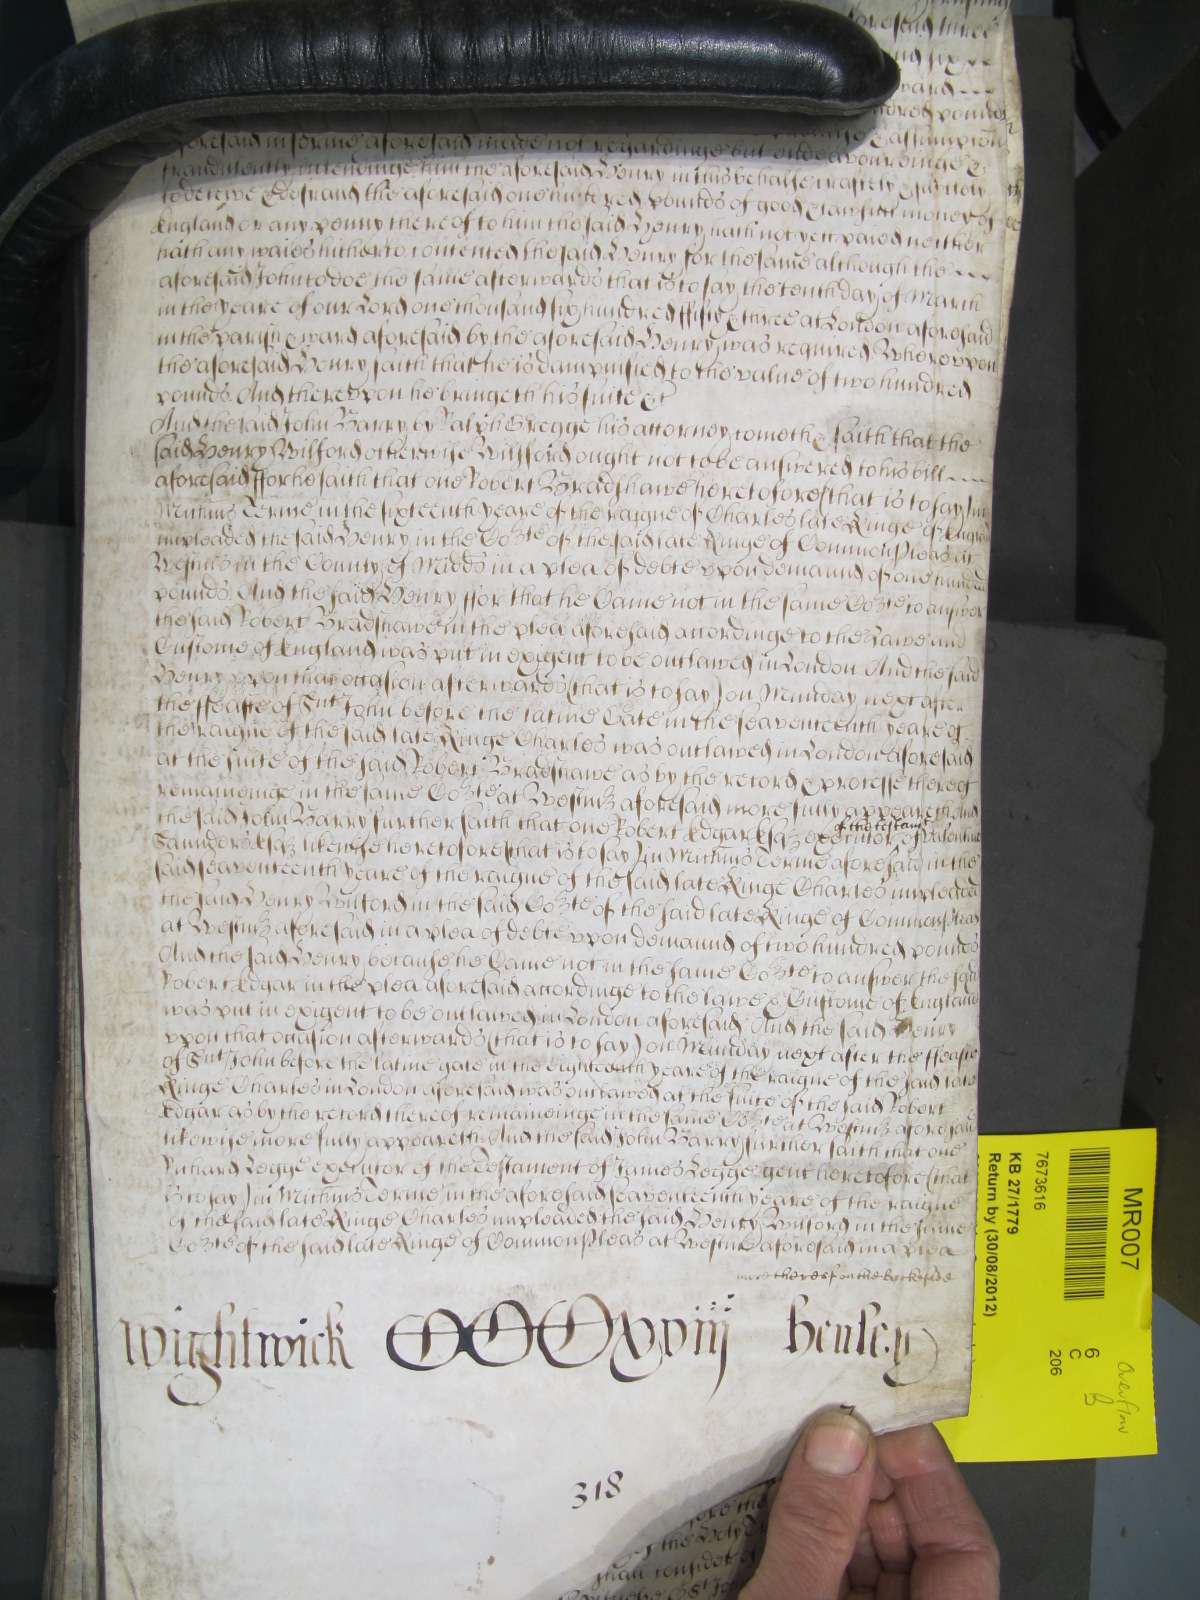 aforesaid three
and six
ward
hundred pounds
assumption
aforesaid in forme aforesaid made not regardinge but endeavouringe &
fraudulently intendinge him the aforesaid Henry in this behalfe craftely &
to deceive & defraud the aforesaid one hundred pounds of good & lawfull money of
England or any penny thereof to him the said Henry hath not yett paied neither
hath any waies hitherto contented the said Henry for the same although the
aforesaid John to doe the same afterwards that is to say the tenth day of March
in the yeare of our Lord one thousand six hundred fiftie & three at London aforesaid
in the parish & ward aforesaid by the aforesaid Henry was required Whereuppon
the aforesaid Henry saith that he is dampnified to the value of two hundred
pounds. And thereupon he bringeth his suite &c
And the said John Barry by Ralph Gregge his attorney cometh & saith that the
said Henry Wilford otherwise Willford ought not to be answered to his bill
aforesaid ffor he saith that one Robert Bradshawe heretofore (that is to say) in
Michms Terme in the sixteenth yeare of the raigne of Charles late Kinge of England
impleaded the said Henry in the Corte of the said late Kinge of Common Pleas at
Westmr in the County of Midds in a plea of debte upon demannd of one hundred
pounds. And the said Henry ffor that he Came not in the same Corte to answer
the said Robert Bradshawe in the plea aforesaid accordinge to the Lawe and
Custome of England was put in exigent to be outlawed in London And the said
Henry upon that occasion afterwards (that is to say) on Munday next after
the ffeaste of Snt John before the latine Gate in the seaventeenth yeare of
the raigne of the said late Kinge Charles was outlawed in London aforesaid
at the suite of the said Robert Bradshawe as by the record & processe thereof
remaineinge in the same Corte at Westmr aforesaid more fully appeareth And
the said John Barry further saith that one Robert Edgar Esqr executor of the testamt of Valentine
Saunders Esqr likewise heretofore (that is to say) in Michms Terme aforesaid in the
said seaventeenth yeare of the raigne of the said late Kinge Charles impleaded
the said Henry Wilford in the said Corte of the said late Kinge of Common Pleas
at Westmr aforesaid in a plea of debte upon demannd of two hundred pounds
And the said Henry because he Came not in the same Corte to answer the said
Robert Edgar in the plea aforesaid accordinge to the lawe & Custome of England
was put in exigent to be outlawed in London aforesaid And the said Henry
upon that occasion afterwards (that is to say) on Munday next after the ffeaste
of Snt John before the latine gate in the eighteenth yeare of the raigne of the said late
Kinge Charles in London aforesaid was outlawed at the suite of the said Robert
Edgar as by the record thereof remaineinge in the same Corte at Westmr aforesaid
likewise more fully appeareth And the said John Barry further saith that one
Richard Legge executor of the Testament of James Legge gent heretofore (that
is to say) in Michms Terme in the aforesaid seaventeenth yeare of the raigne
of the said late Kinge Charles impleaded the said Henry Wilford in the same
Corte of the said late Kinge of Common Pleas at Westmr aforesaid in a plea
more thereof on the backside
Wightwick CCCxviij Henley
318
fore the
of the
shall consider of
MR007
7673616
KB 27/1779
Return by (30/08/2012)
6
C
206
Overflow
B